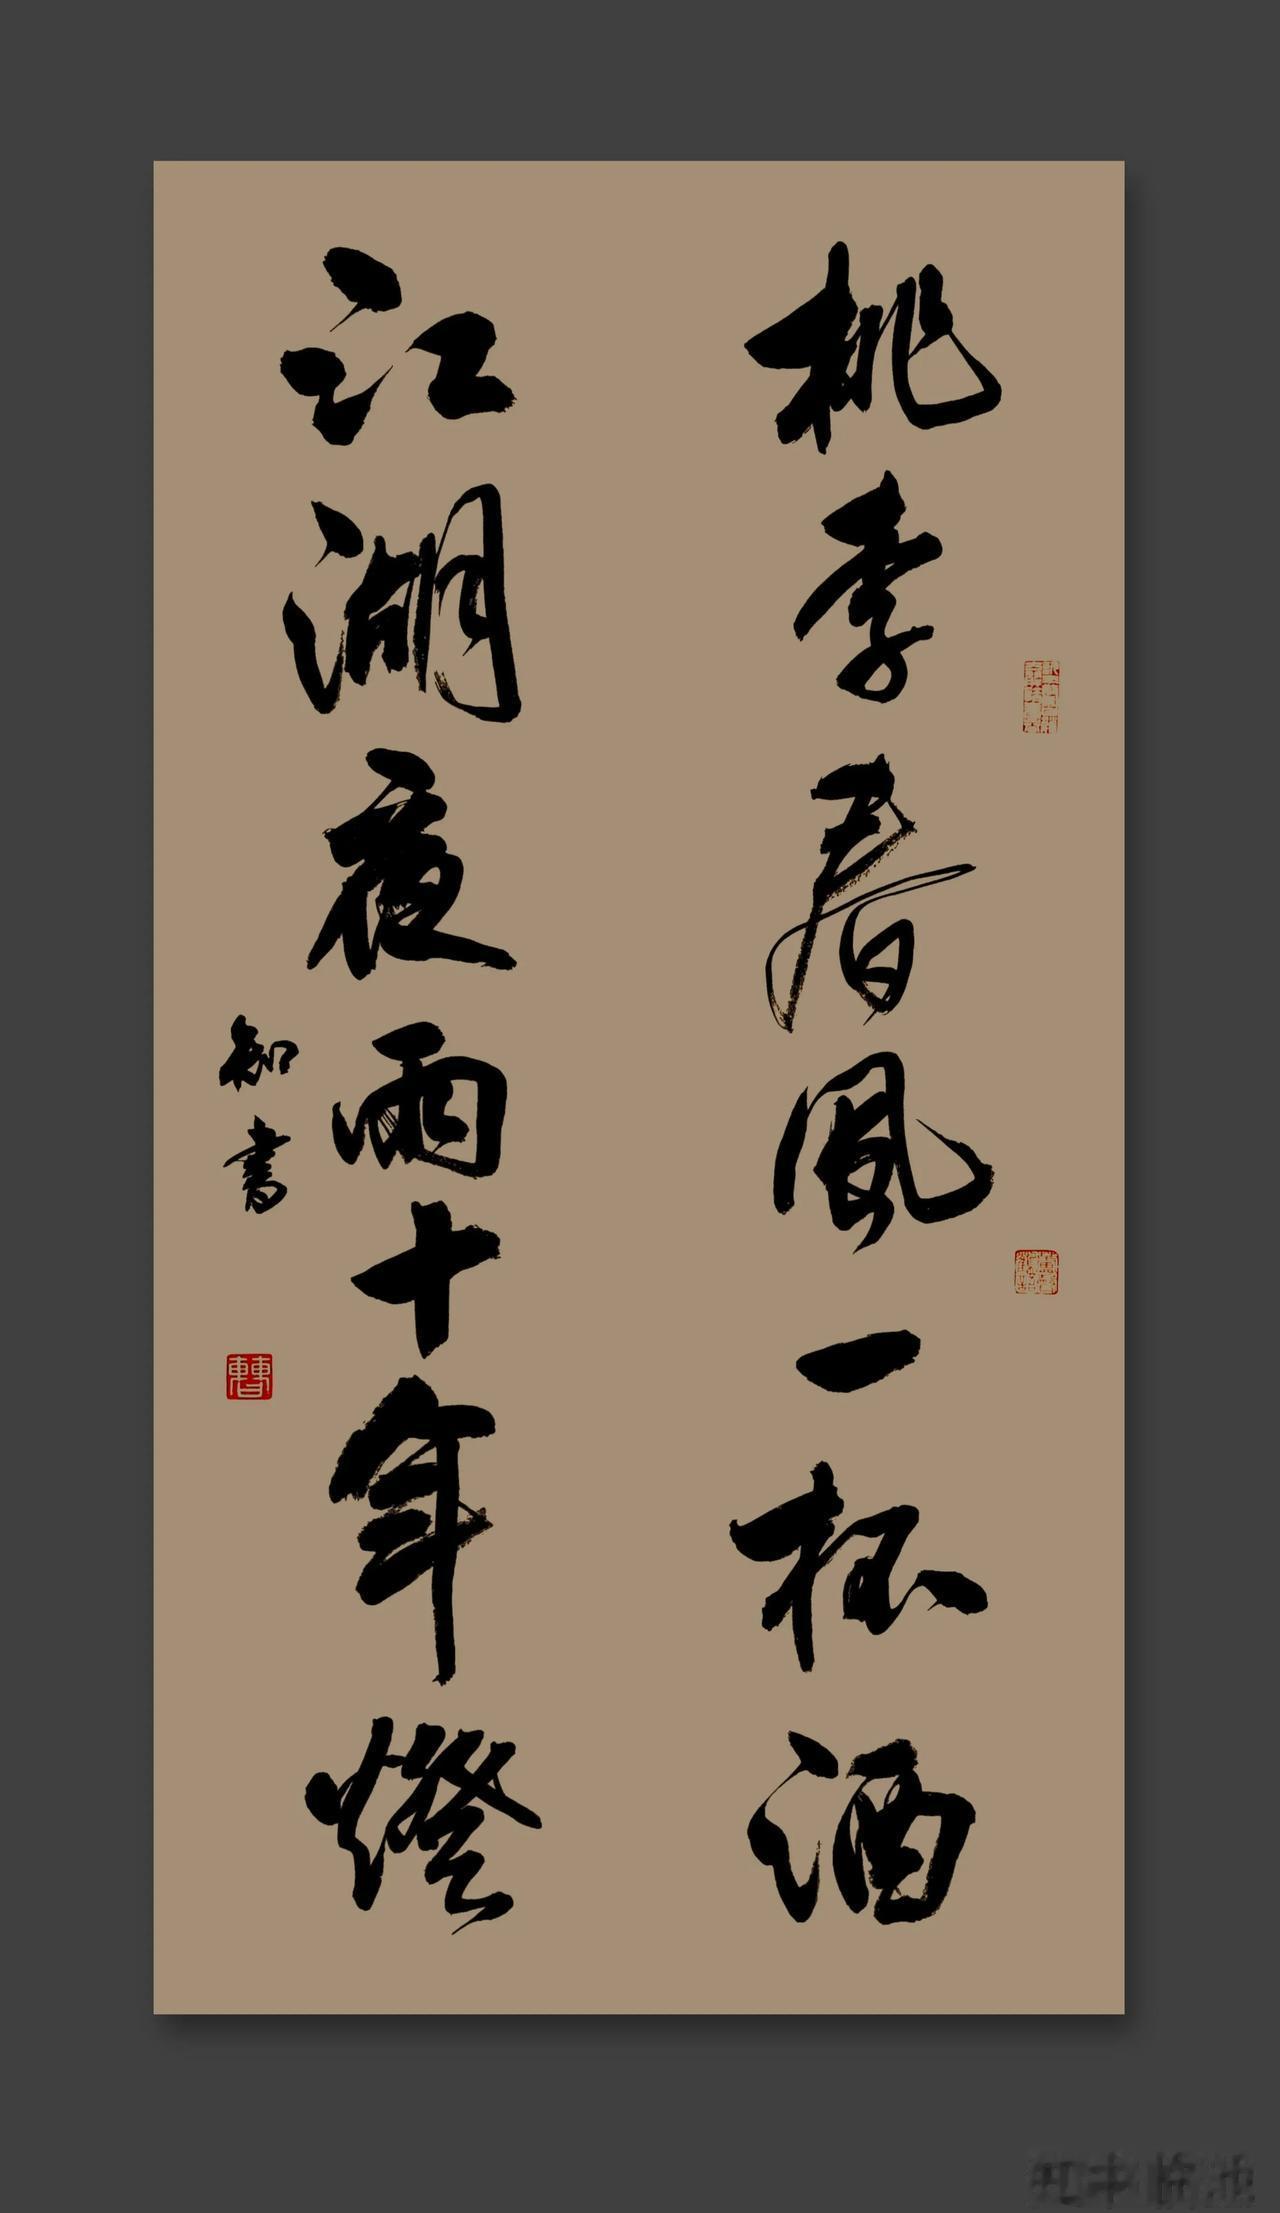 桃李春風一杯酒
江湖夜雨十年燈
知書